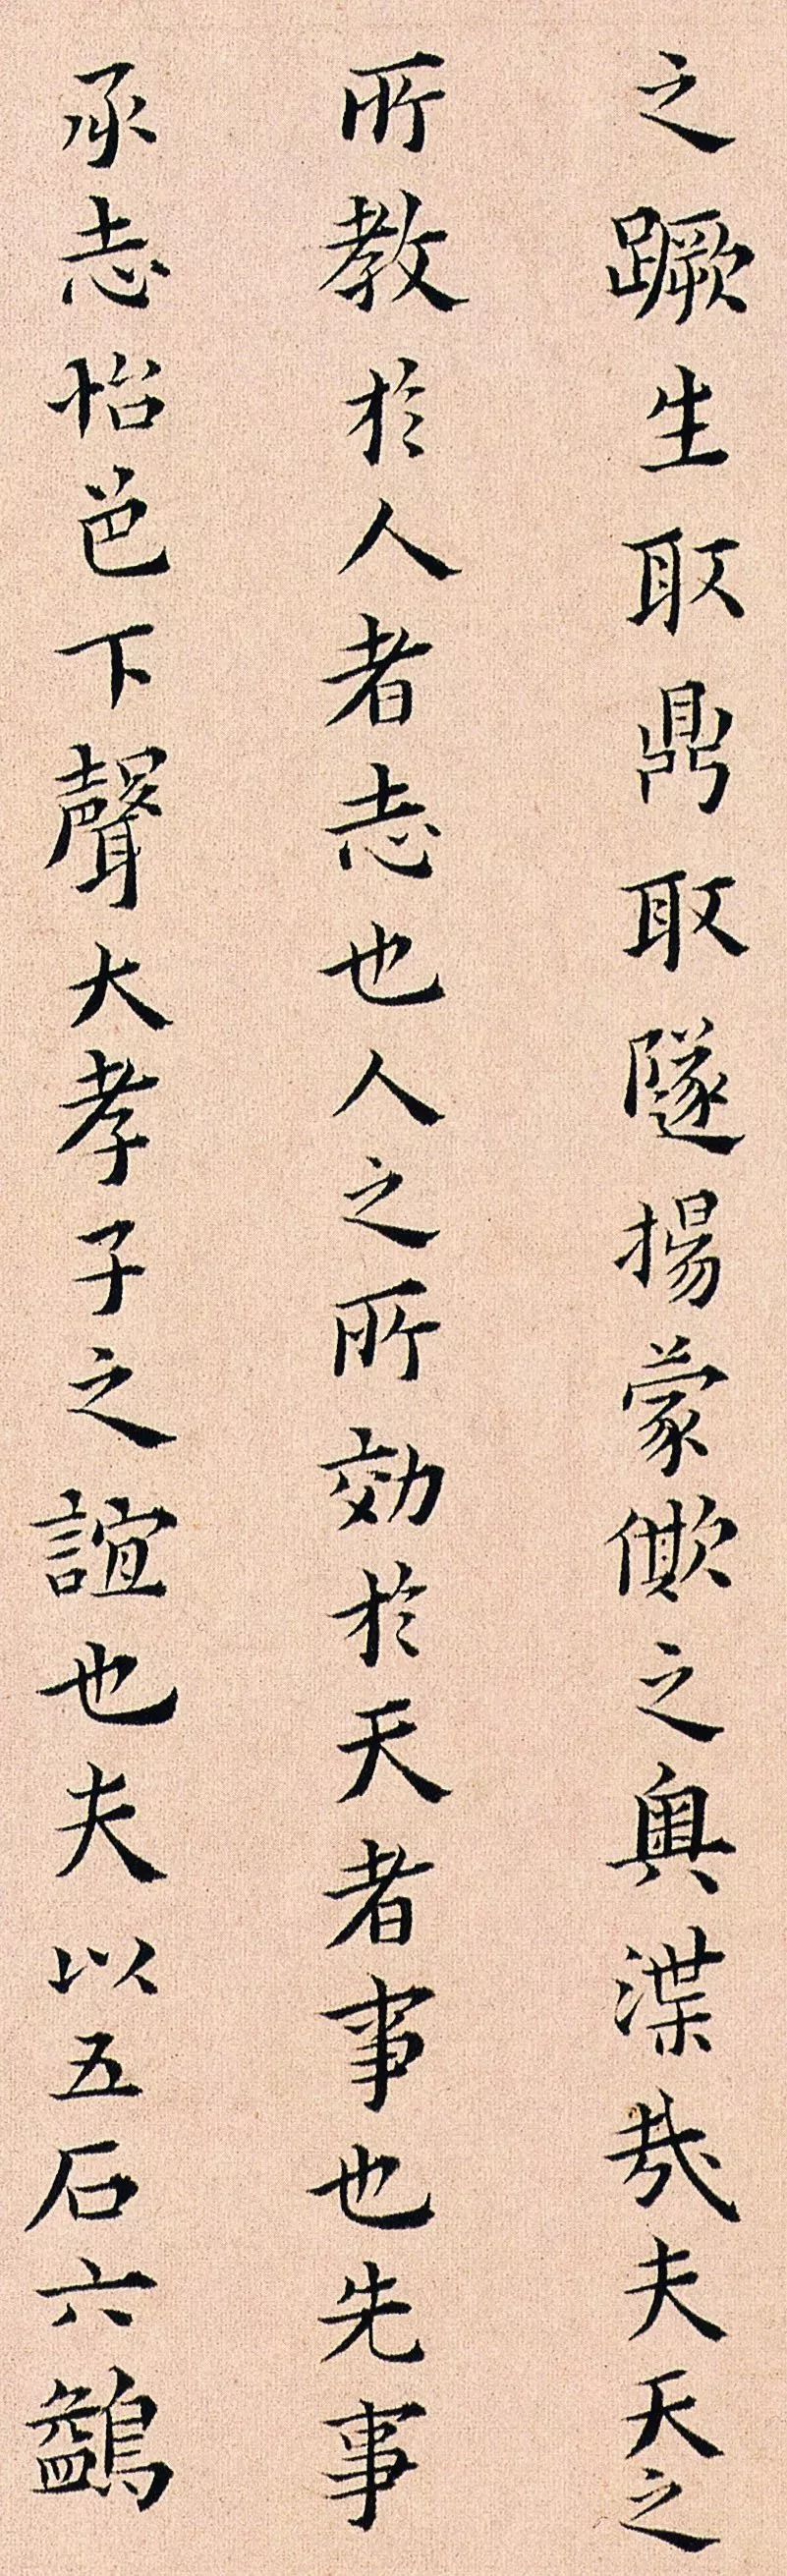 之蹶生取鼎取隧揚蒙僛之輿渫哉夫天之
所教於人者志也人之所効於天者事也先事
承志怡色下聲大孝子之誼也夫以五石六鷁